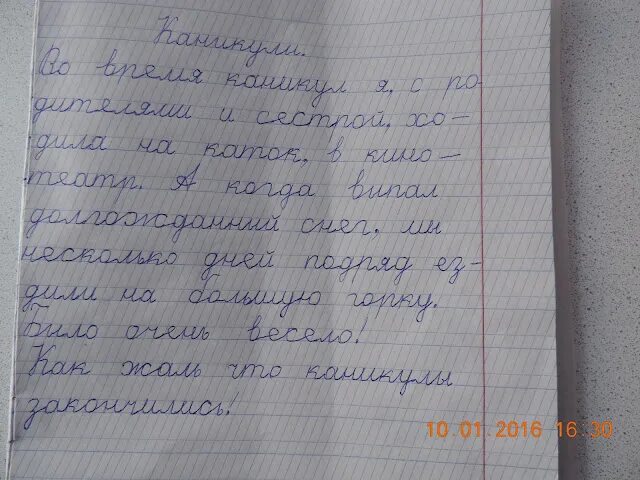 Каникули.
Во время каникул я, с ро-
дителями и сестрой, хо-
дила на каток, в кино-
театр. А когда выпал
долгожданний снег, мы
несколько дней подряд ез-
дили на большую горку.
Било очень весело!
Как жаль что каникулы
закончились!
10.01.2016 16:30